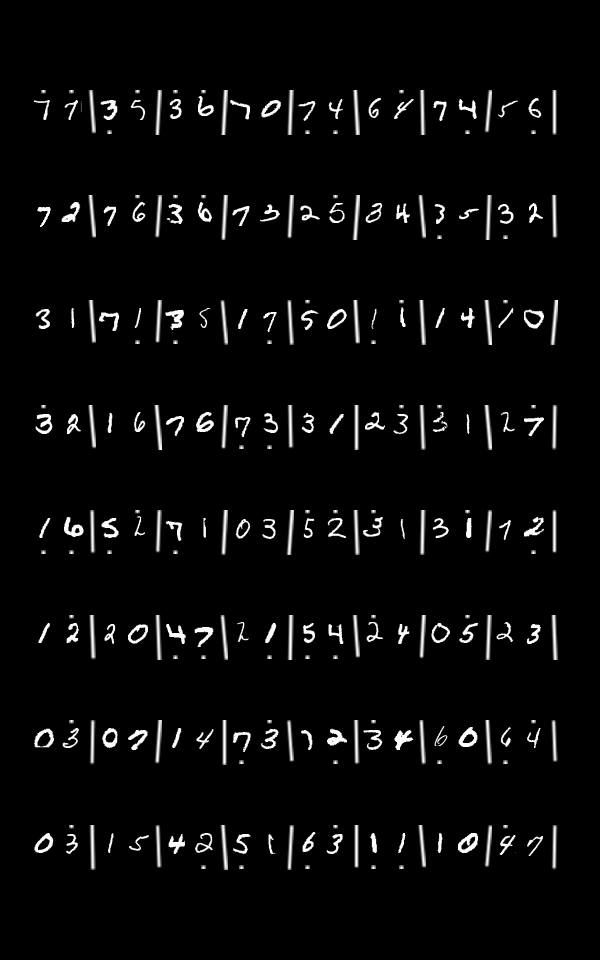 7 7 | 3 5 | 3 6 | 7 0 | 7 4 | 6 4 | 7 4 | 5 6 |
7 2 | 7 6 | 3 6 | 7 3 | 2 5 | 3 4 | 3 5 | 3 2 |
3 1 | 7 1 | 3 5 | 1 7 | 5 0 | 1 1 | 1 4 | 1 0 |
3 2 | 1 6 | 7 6 | 7 3 | 3 1 | 2 3 | 3 1 | 2 7 |
1 6 | 5 2 | 7 1 | 0 3 | 5 2 | 3 1 | 3 1 | 7 2 |
1 2 | 2 0 | 4 7 | 2 1 | 5 4 | 2 4 | 0 5 | 2 3 |
0 3 | 0 7 | 1 4 | 7 3 | 7 2 | 3 4 | 6 0 | 6 4 |
0 3 | 1 5 | 4 2 | 5 1 | 6 3 | 1 1 | 1 0 | 4 7 |